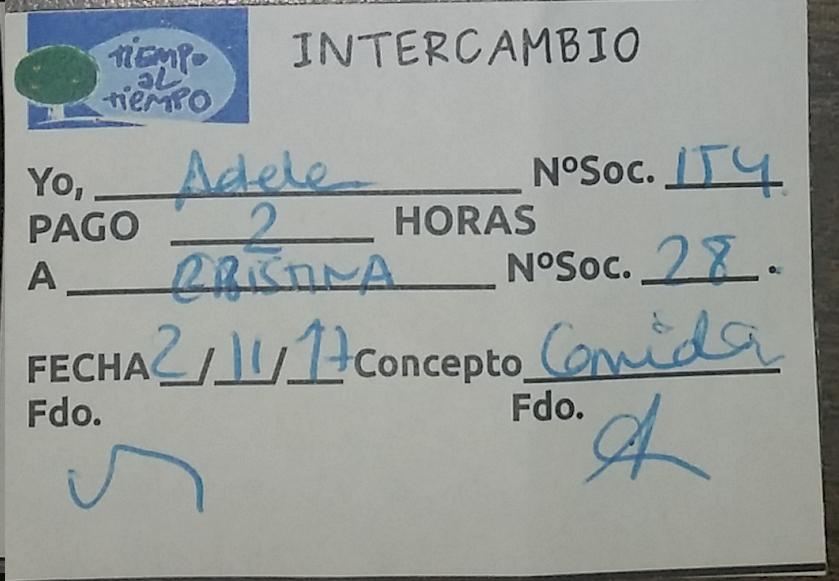 tiEMPO
aL
tiEMPO
INTERCAMBIO
Yo, Adele NºSoc. 154
PAGO 2 HORAS
A CRISTINA NºSoc. 28.
FECHA 2/11/17 Concepto Comida
Fdo. Fdo.